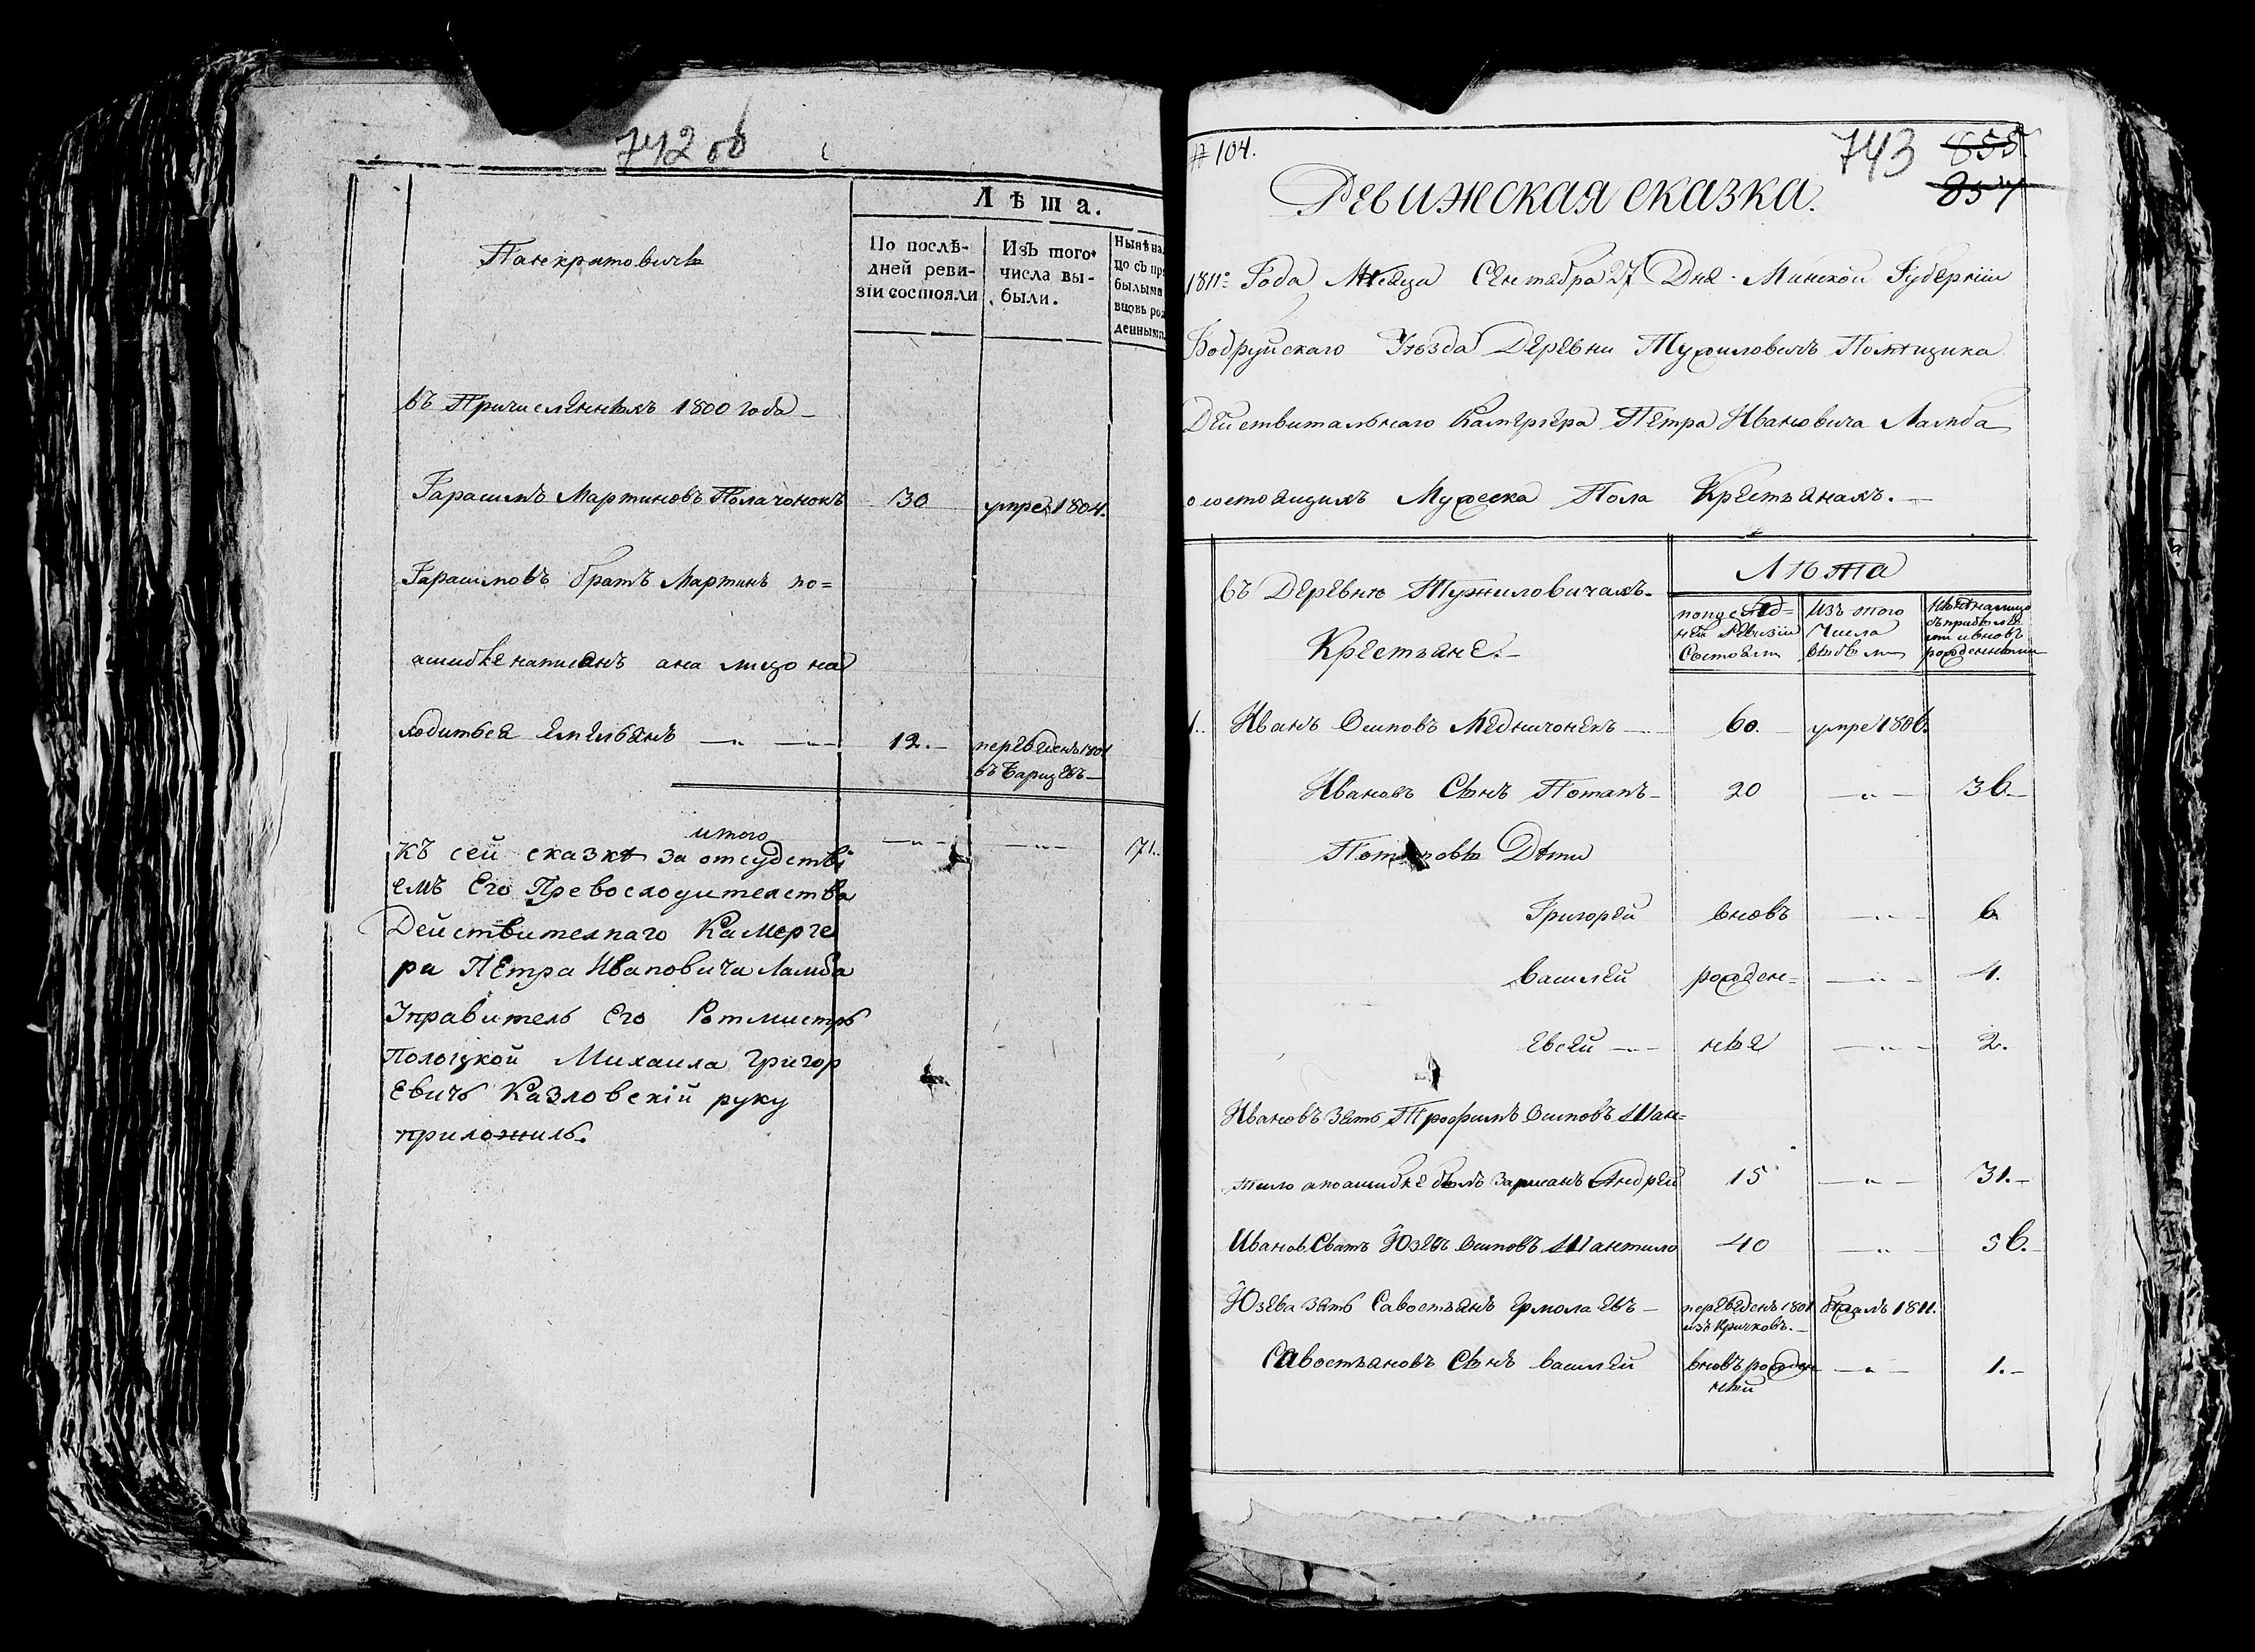 742 об
Лѣта.
Панкратовичѣ
По послѣ-
дней реви-
зіи состояли
Изъ того
числа вы-
были.
Нынѣ на
въ Причисленныхъ 1800 года
Гарасимъ Мартиновъ Полачонокъ 30 умре 1804.
Гарасимовъ братъ Мартинъ по=
ашибке написанъ ана лицо на
ходитьсе Емельянъ 12. переведенъ 1801
въ
итого 71.
Къ сей сказкѣ за отсудстві
емъ Его Превосходителства
Действителнаго Камерге
ра Петра Ивановича Ламба
Управитель Его Ротмистръ
Полоцкой Михаила Григор
Евичъ Казловскій руку
приложилъ.
743 855.
854
# 104.
Ревижская сказка.
1811: Года Мѣсяца Сентября 27 Дня Минской Губерніи
Бобруйскаго Уѣзда Деревни Помѣщика
Действительнаго Камергера Петра Ивановича Ламба
о состоящихъ Мужеска Пола Крестьянахъ.
Лѣта
въ Деревнѣ Тужиловичахъ.
Крестьяне.
Изъ того
числа
выбыли
Состояли
1. Иванъ Осиповъ Медничонекъ 60. умре 1806.
Ивановъ Сынъ Потапъ 20 36.
Потаповы Дѣти
Григорей вновь 6
Василей рожден= 4.
Евсей ные 2.
Ивановъ Зять Трофимъ Осиповъ Шан=
тило апоашибке былъ записанъ Андрей 15 31.
Иванов. Сватъ Юзефъ Осиповъ Шантило 40 56.
Юзева зять Савостьянъ Ермолаевъ переведенъ 1801 бежалъ 1811.
изъ Кричковъ.
Савостьяновъ Сынъ Василей вновь рожден 1.
ный